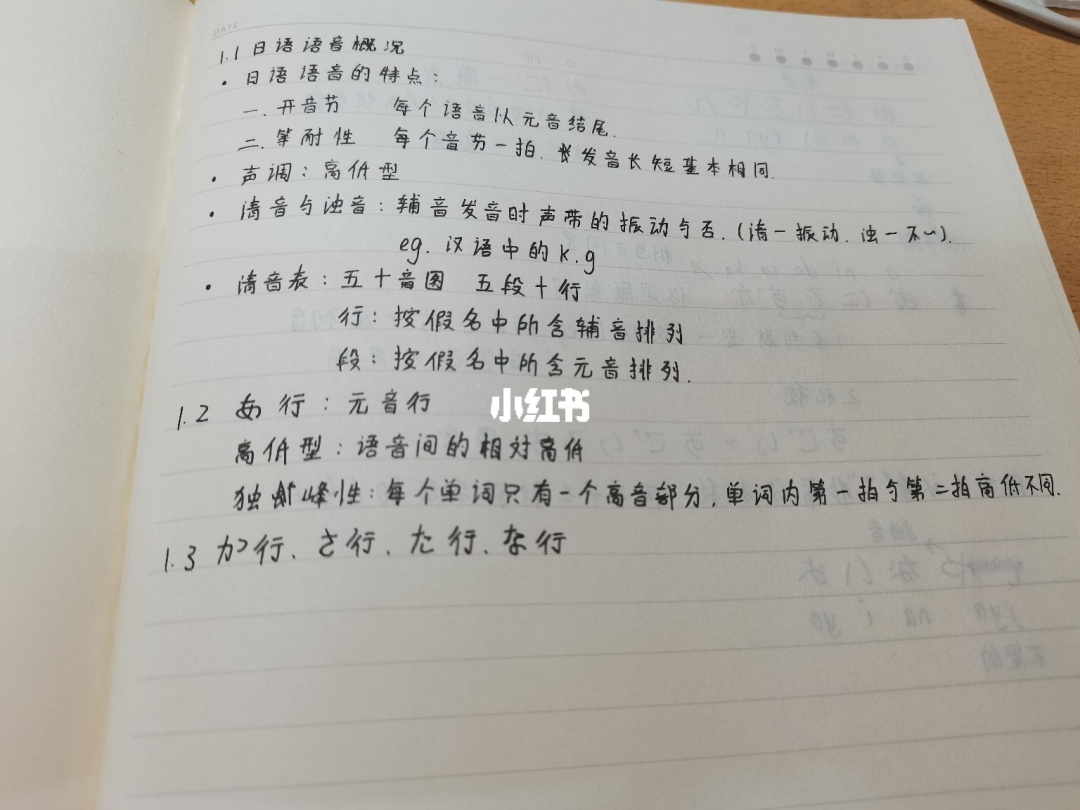 1.1 日语语音概况
· 日语语音的特点:
一. 开音节 每个语音以元音结尾.
二. 等耐性 每个音节一拍. 发音长短基本相同.
· 声调: 高低型
· 清音与浊音: 辅音发音时声带的振动与否. (清一振动. 浊一不~).
eg. 汉语中的 k.g
· 清音表: 五十音图 五段十行
行: 按假名中所含辅音排列
段: 按假名中所含元音排列.
1.2 あ行: 元音行
小红书
高低型: 语音间的相对高低
独峰性: 每个单词只有一个高音部分, 单词内第一拍与第二拍高低不同.
1.3 か行、さ行、た行、な行